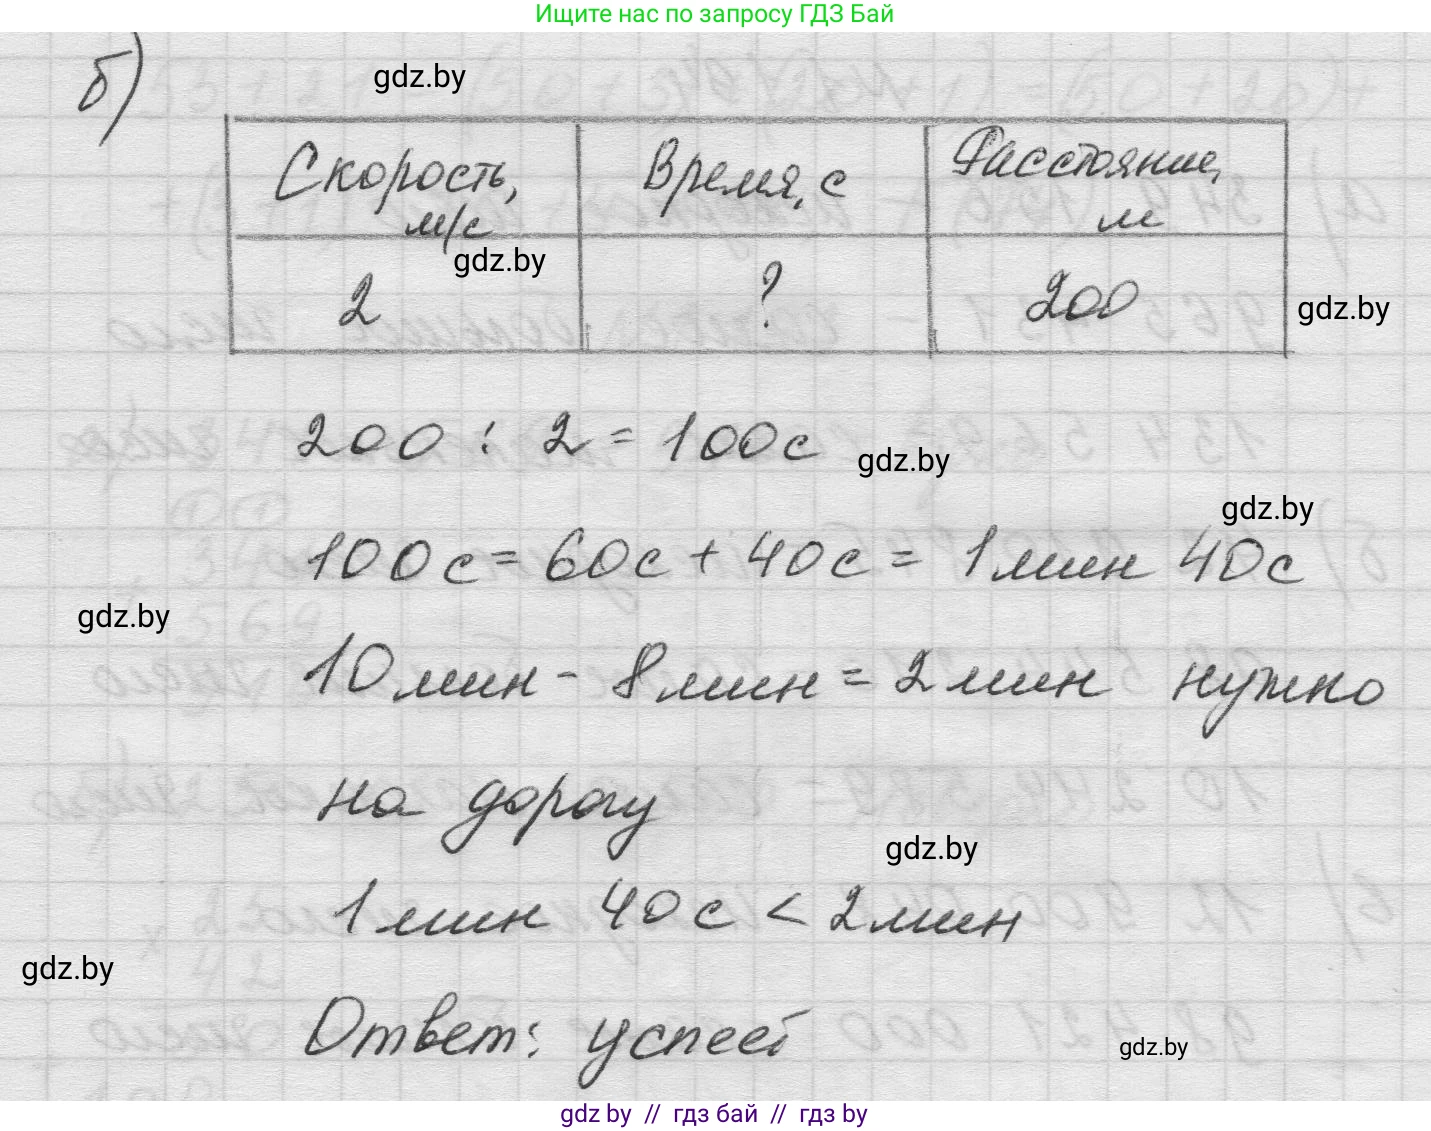 Ищите нас по запросу ГДЗ Бай
б)
gdz.by
Скорость, м/с
Время, с
Расстояние, м
gdz.by
2
?
200
gdz.by
200 : 2 = 100 с
gdz.by
gdz.by
100 с = 60 с + 40 с = 1 мин 40 с
gdz.by
10 мин - 8 мин = 2 мин нужно
на дорогу
gdz.by
1 мин 40 с < 2 мин
gdz.by
Ответ: успеет
gdz.by
gdz by // гдз бай // гдз by